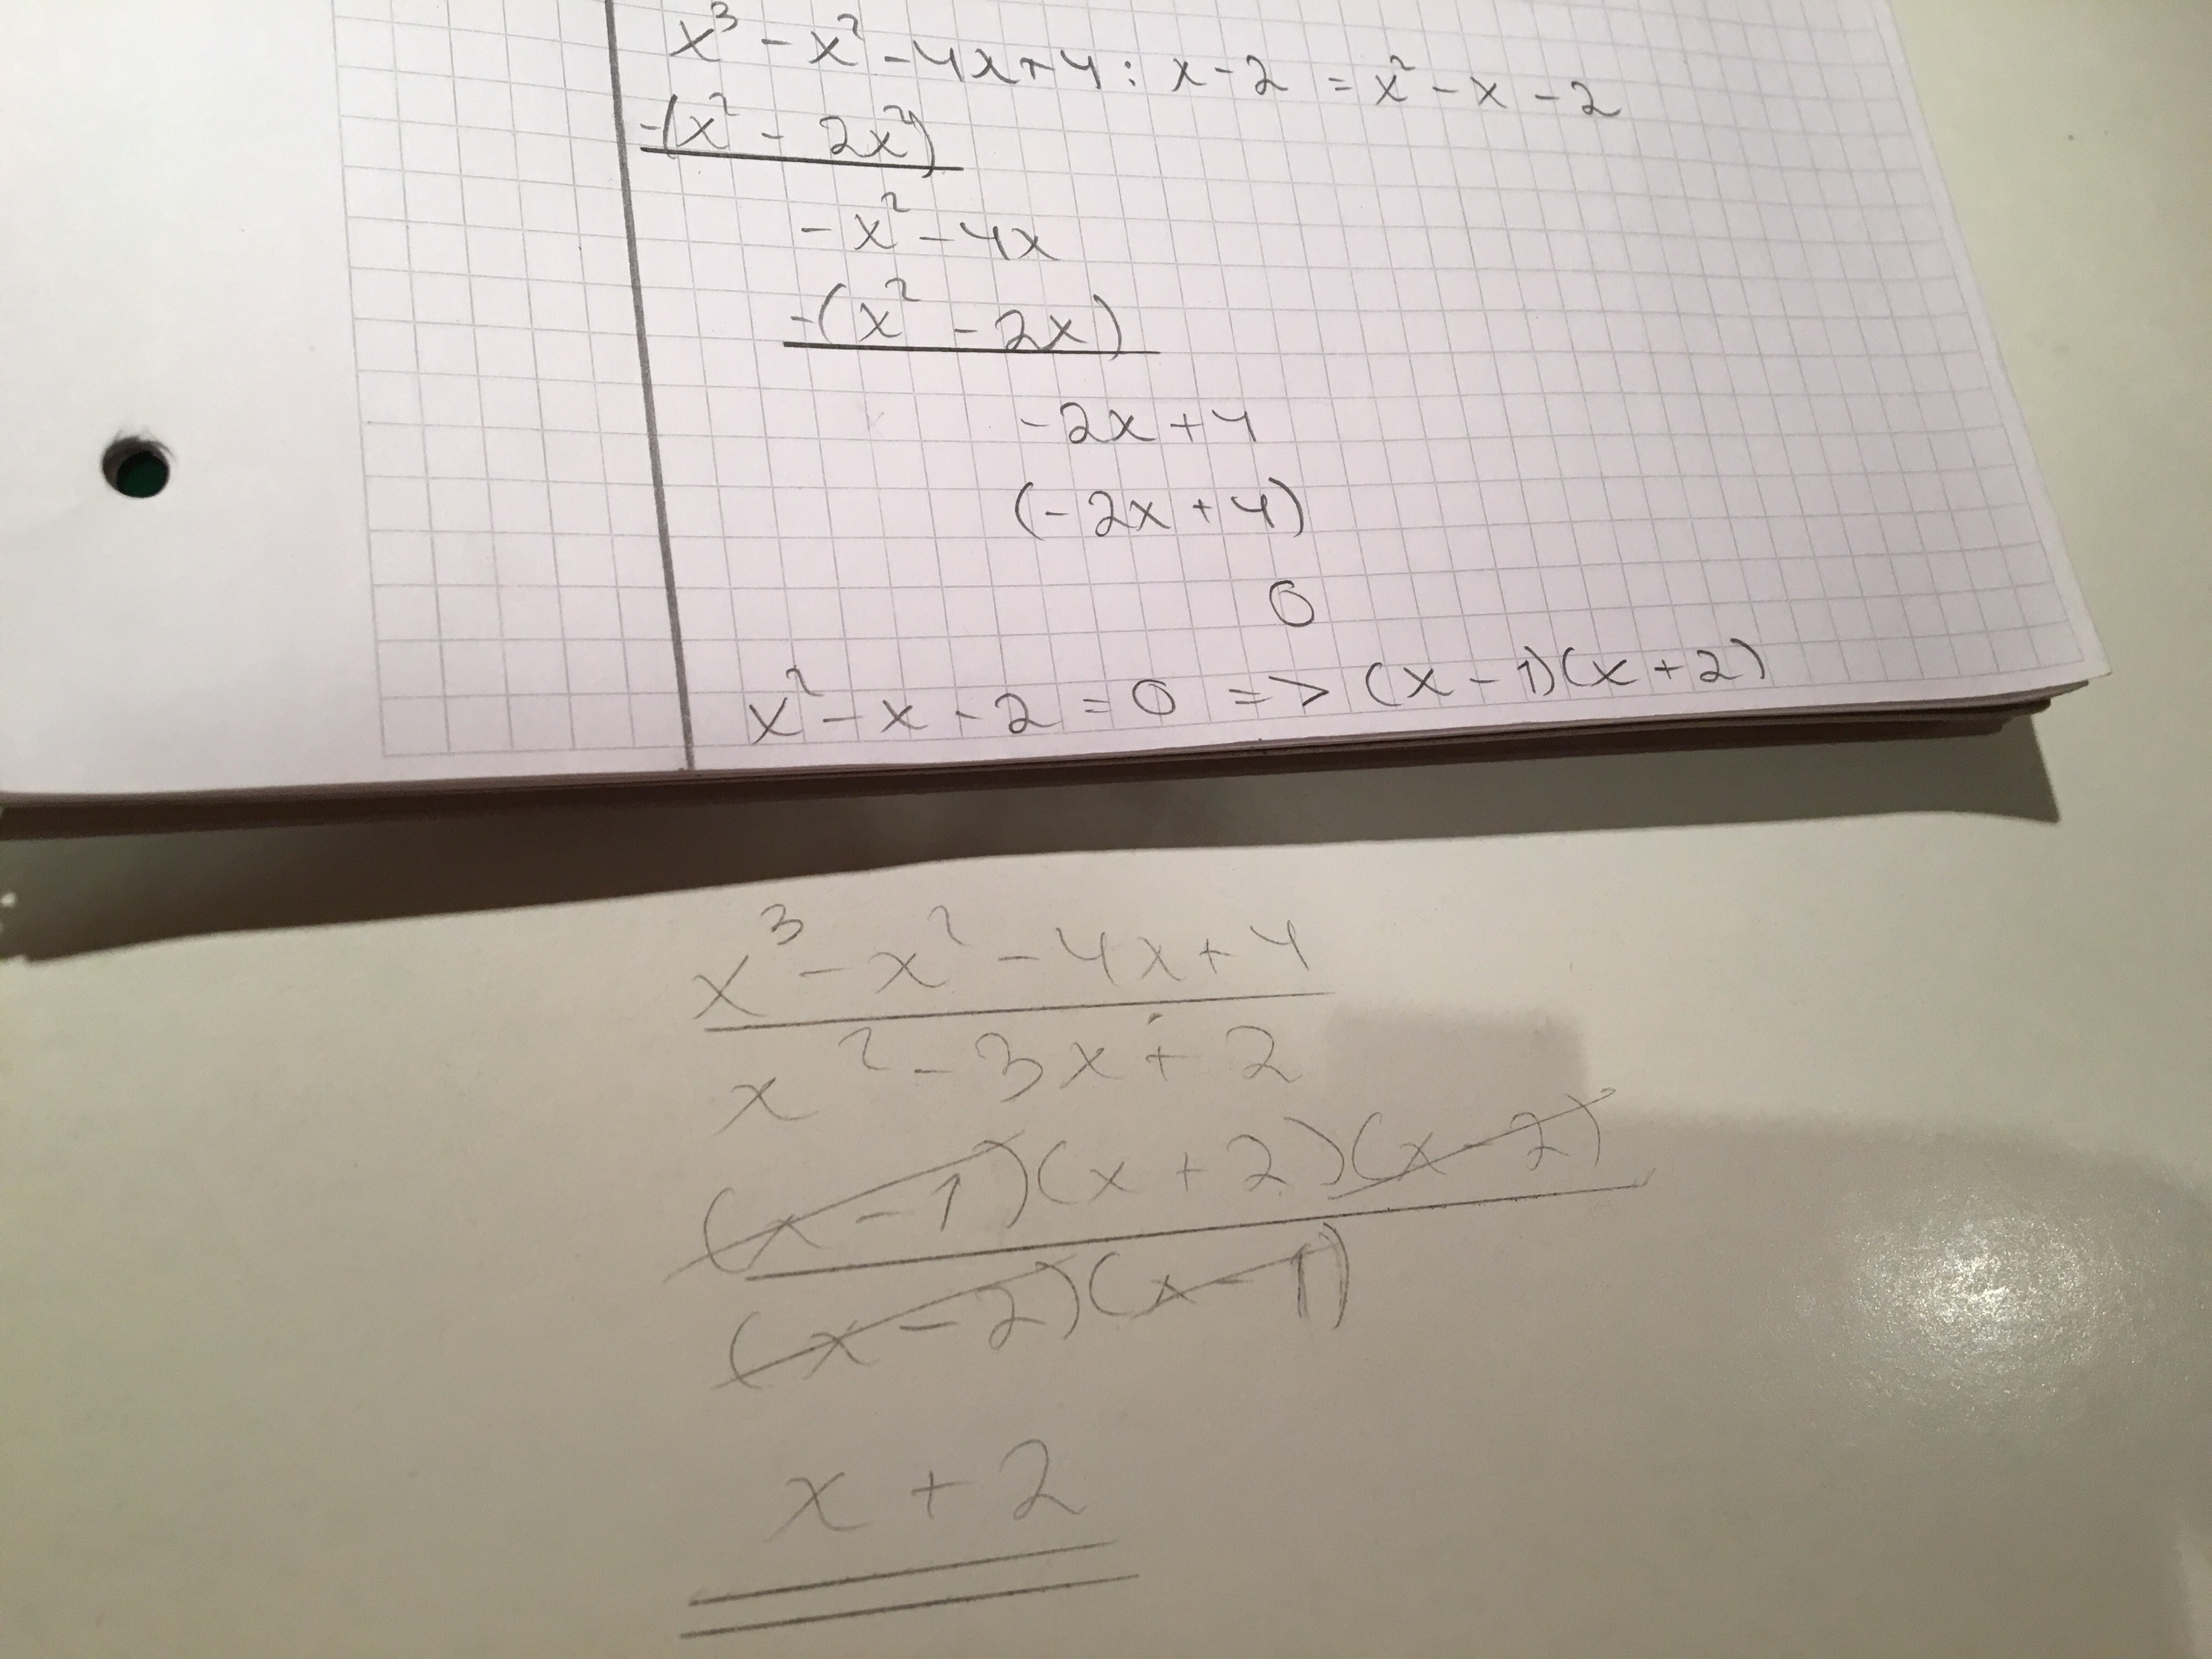 x³ - x² - 4x + 4 : x - 2 = x² - x - 2
-(x² - 2x²)
- x² - 4x
-(x² - 2x)
- 2x + 4
(- 2x + 4)
0
x² - x - 2 = 0 => (x - 1)(x + 2)
x³ - x² - 4x + 4
x² - 3x + 2
(x - 1)(x + 2)(x - 2)
(x - 2)(x - 1)
x + 2